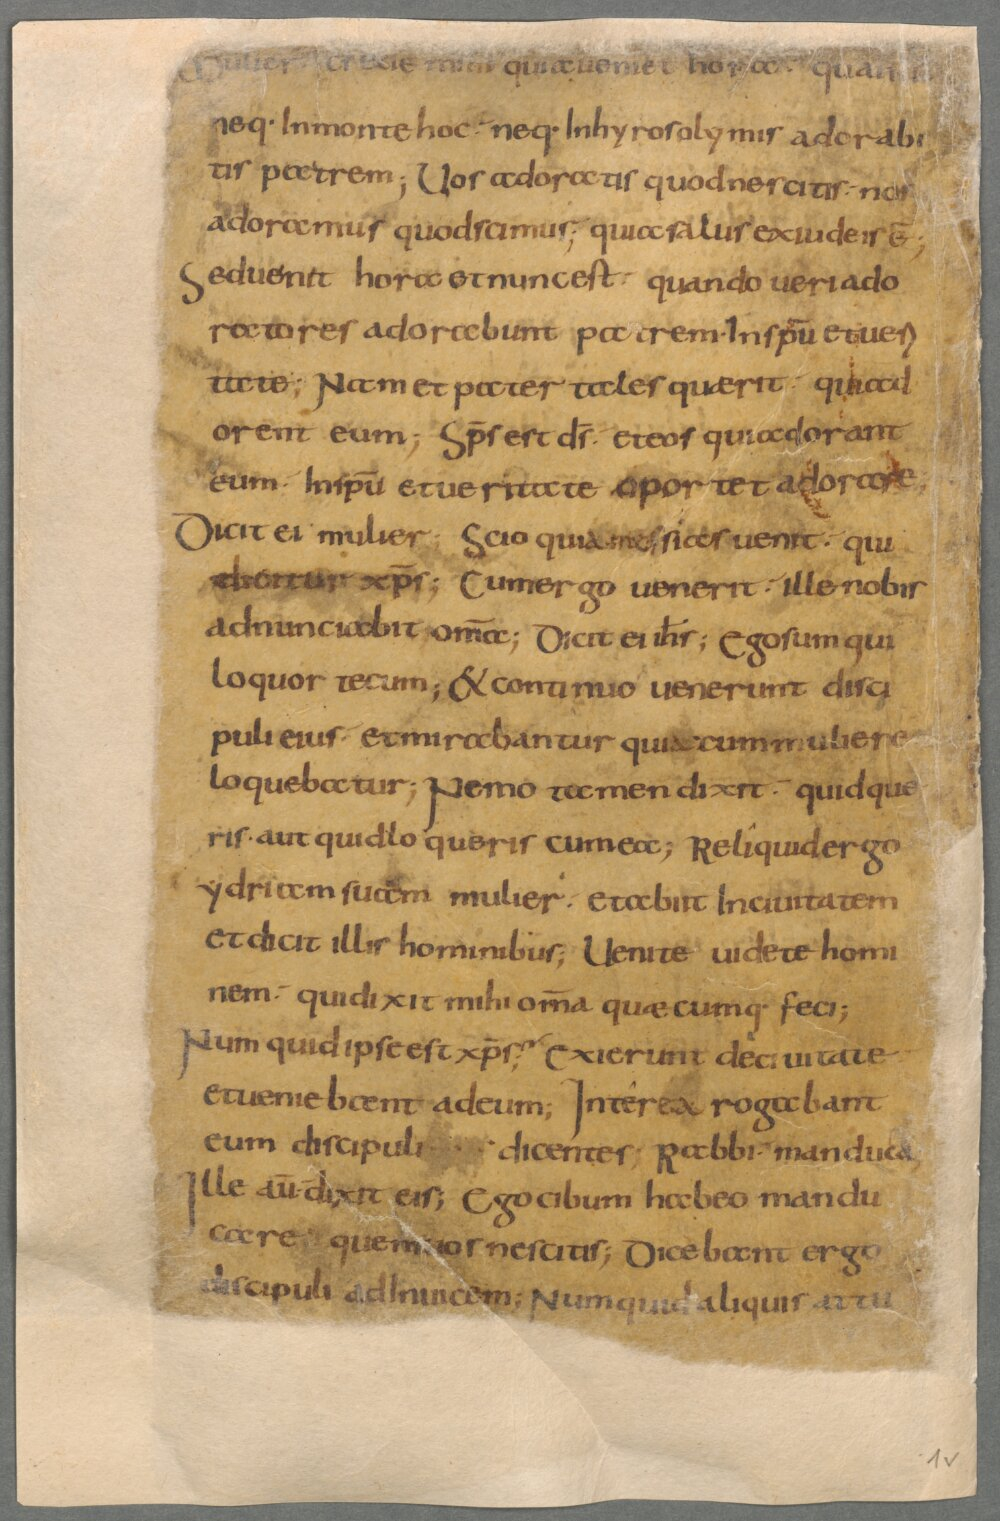 Mulier crede mihi quia ueniet hora· quando
neq· In monte hoc· neq· In hyrosolymis adorabi
tis patrem; Uos adoratis quod nescitis· nos
adoramus quod scimus; quia salus ex iudeis ē;
Sed uenit hora et nunc est· quando ueri ado
ratores adorabunt patrem· In sp̄u et ueri
tate; Nam et pater tales quærit· qui ad
orent eum; Sp̄s est ds̄· et eos qui adorant
eum· In sp̄u et ueritate oportet adorare;
Dicit ei mulier; Scio quia messias uenit· qui
dicitur xp̄s; Cum ergo uenerit· ille nobis
adnunciabit om̄a; Dicit ei ih̄s; Ego sum qui
loquor tecum; & continuo uenerunt disci
puli eius· et mirabantur quia cum muliere
loquebatur; Nemo tamen dixit· quid que
ris· aut quid loqueris cum ea; Reliquid ergo
ydriam suam mulier· et abiit In ciuitatem
et dicit illis hominibus; Uenite uidete homi
nem· qui dixit mihi om̄a quæcumq· feci;
Num quid ipse est xp̄s? Exierunt de ciuitate
et ueniebant ad eum; Interea rogabant
eum discipuli dicentes; Rabbi· manduca
Ille au̅· dixit eis; Ego cibum habeo mandu
care· quem uos nescitis; Dicebant ergo
discipuli ad Inuicem; Num quid aliquis attu
1v